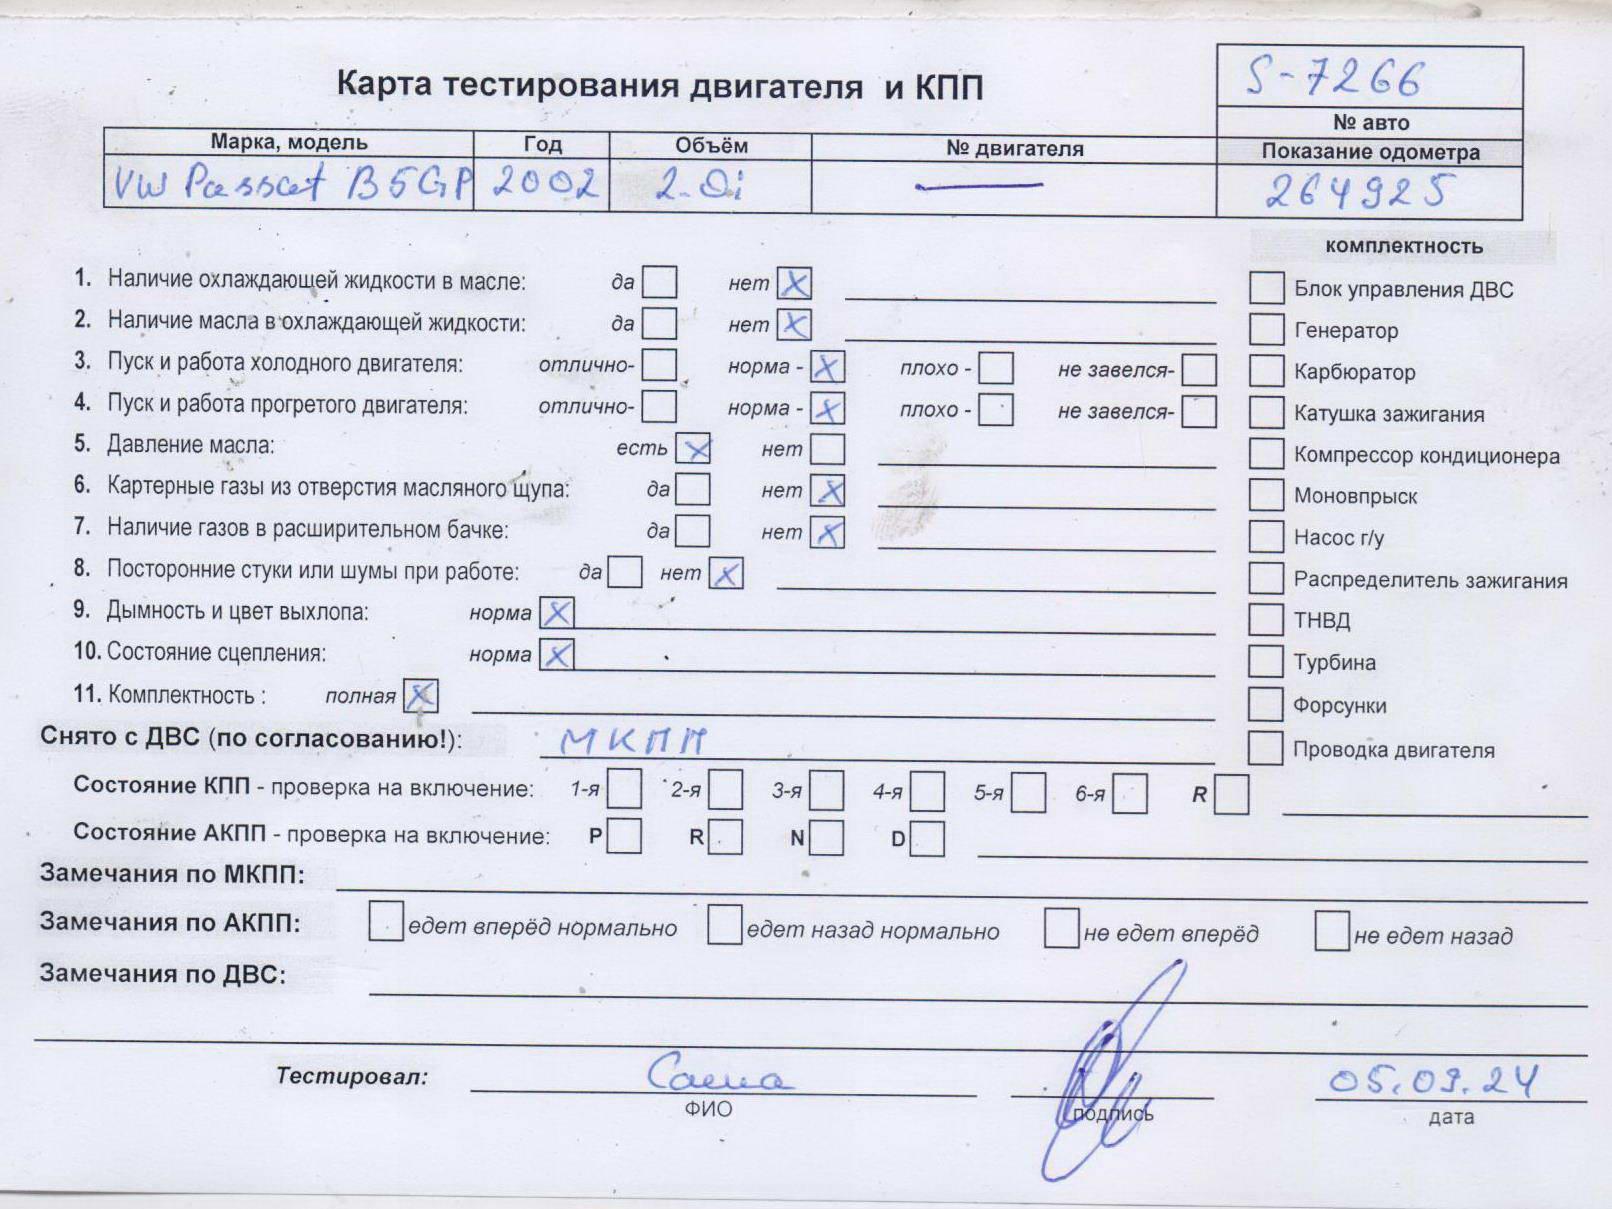 S-7266
Карта тестирования двигателя и КПП
№ авто
Марка, модель Год Объём № двигателя Показание одометра
VW Passat B5GP 2002 2.0i — 264925
комплектность
1. Наличие охлаждающей жидкости в масле: да нет X Блок управления ДВС
2. Наличие масла в охлаждающей жидкости: да нет X Генератор
3. Пуск и работа холодного двигателя: отлично- норма - X плохо - не завелся- Карбюратор
4. Пуск и работа прогретого двигателя: отлично- норма - X плохо - не завелся- Катушка зажигания
5. Давление масла: есть X нет Компрессор кондиционера
6. Картерные газы из отверстия масляного щупа: да нет X Моновпрыск
7. Наличие газов в расширительном бачке: да нет X Насос г/у
8. Посторонние стуки или шумы при работе: да нет X Распределитель зажигания
9. Дымность и цвет выхлопа: норма X ТНВД
10. Состояние сцепления: норма X Турбина
11. Комплектность : полная X Форсунки
Снято с ДВС (по согласованию!): МКПП Проводка двигателя
Состояние КПП - проверка на включение: 1-я 2-я 3-я 4-я 5-я 6-я R
Состояние АКПП - проверка на включение: P R N D
Замечания по МКПП:
Замечания по АКПП: едет вперёд нормально едет назад нормально не едет вперёд не едет назад
Замечания по ДВС:
Тестировал: Саша 05.09.24
ФИО подпись дата